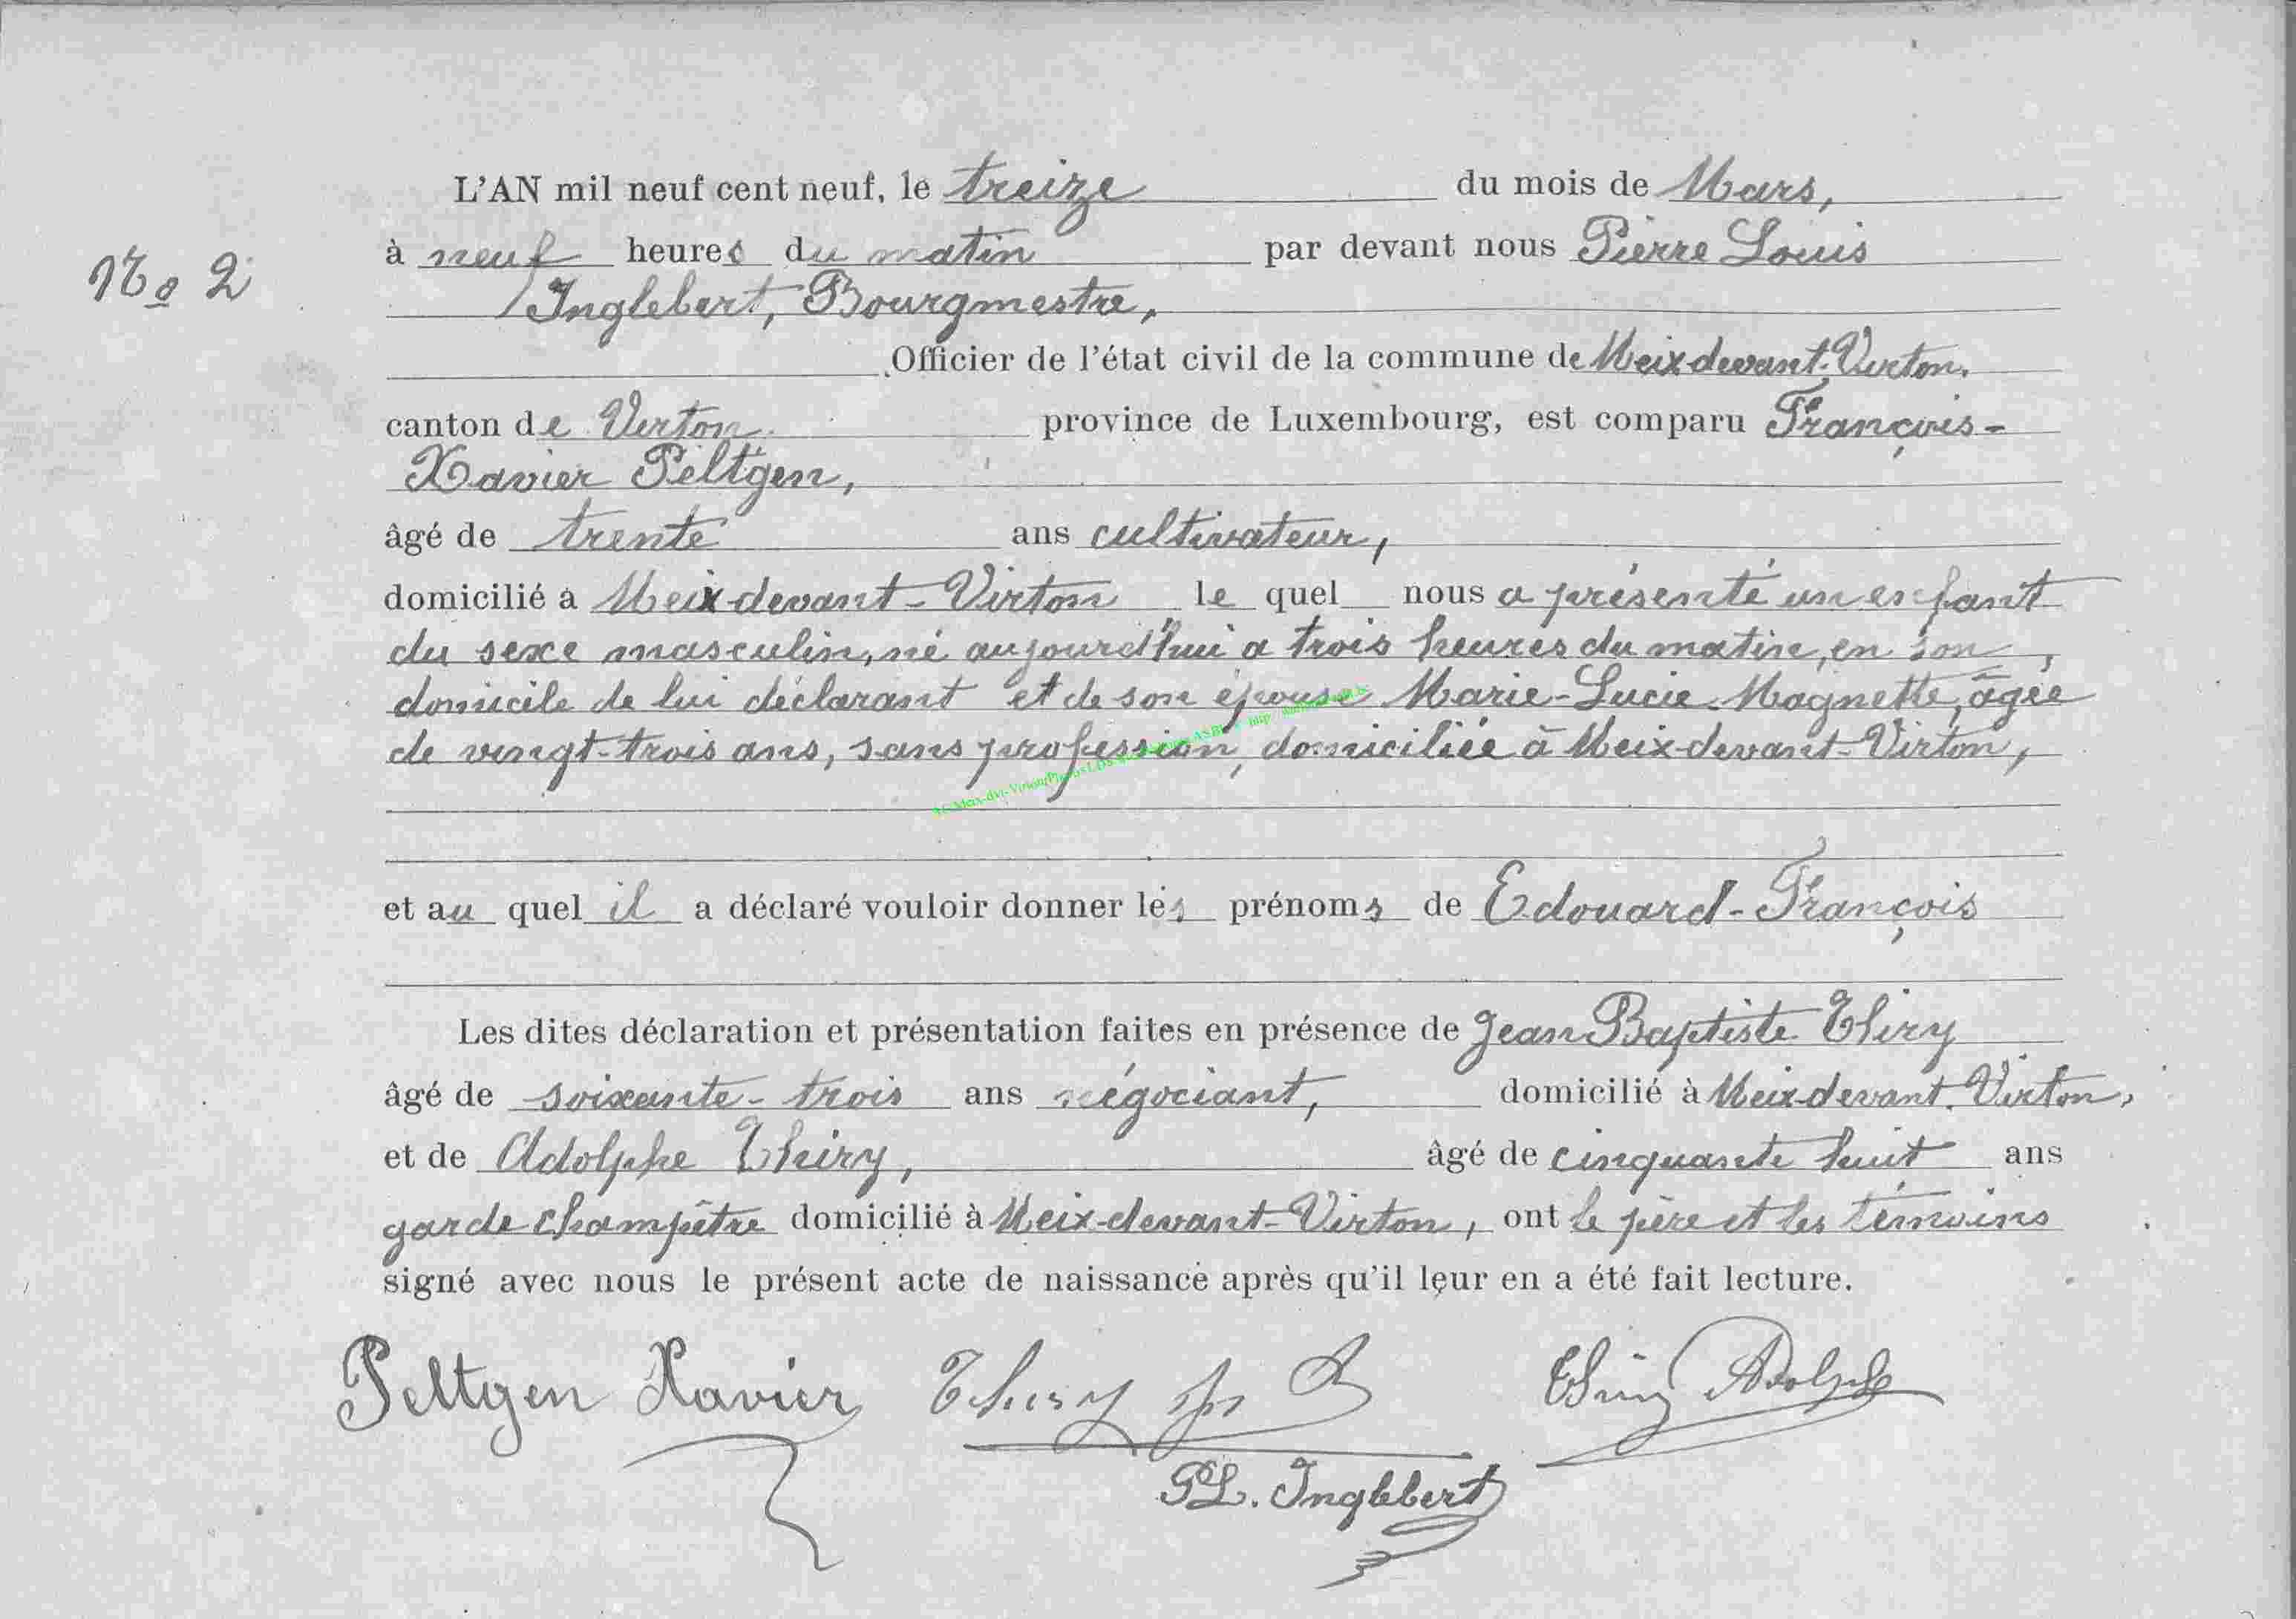 L'AN mil neuf cent neuf, le treize du mois de Mars,
No 2
à neuf heures du matin par devant nous Pierre Louis
Inglebert, Bourgmestre,
Officier de l'état civil de la commune de Meix devant-Virton,
canton de Virton province de Luxembourg, est comparu François-
Xavier Peltgen,
âgé de trente ans cultivateur,
domicilié à Meix devant-Virton le quel nous a présenté un enfant
du sexe masculin, né aujourd'hui à trois heures du matin, en son
domicile de lui déclarant et de son épouse Marie-Lucie Magnette, âgée
de vingt-trois ans, sans profession, domiciliée à Meix-devant-Virton,
et au quel il a déclaré vouloir donner les prénoms de Edouard-François
Les dites déclaration et présentation faites en présence de Jean Baptiste Thiry
âgé de soixante-trois ans négociant, domicilié à Meix-devant-Virton,
et de Adolphe Thiry, âgé de cinquante huit ans
garde champêtre domicilié à Meix-devant-Virton, ont le père et les témoins
signé avec nous le présent acte de naissance après qu'il leur en a été fait lecture.
Peltgen Xavier Thiry J B Thiry Adolphe
PL. Inglebert